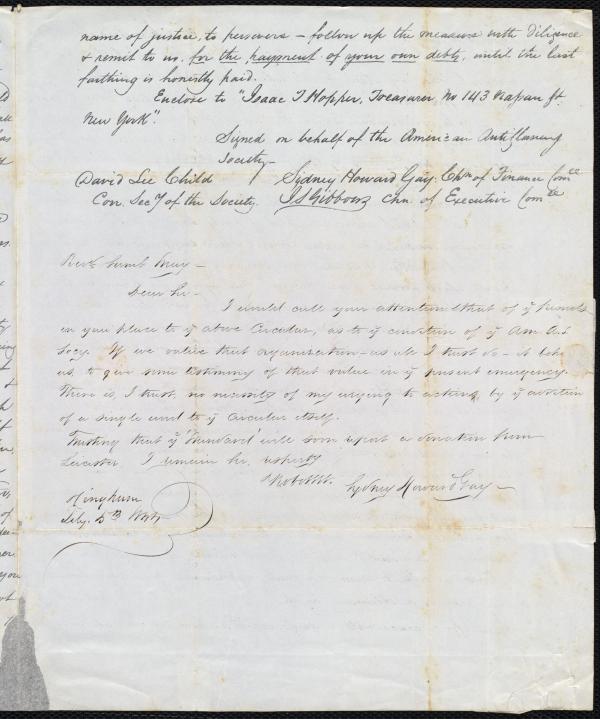 name of justice, to persevere – follow up the measure with diligence
& remit to us, for the payment of your own debts, until the last
farthing is honestly paid.
Enclose to "Isaac T Hopper, Treasurer, No 143 Nassau St.
New York".
Signed on behalf of the American Anti Slavery
Society –
David Lee Child
Sydney Howard Gay. Chn of Finance Comtee
Cor. Secy of the Society.
J S Gibbons Chn. of Executive Comtee
Revd. Saml May –
Dear Sir –
I would call your attention & that of ye friends
in your place to ye above Circular, as to ye condition of ye Am. A.S.
Socy. If we value that organization – as all I trust do – it
us, to give some testimony of that value in ye present emergency.
There is, I trust, no necessity of my urging to action, by ye addition
of a single word to ye Circular itself.
Trusting that ye 'Standard' will soon report a donation from
Leicester I remain Sr. respecty
Sydney Howard Gay –
Hingham
Feby. 5th 1844